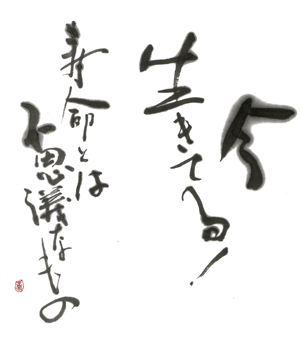 今
生きてる!
寿命とは
不思議なもの